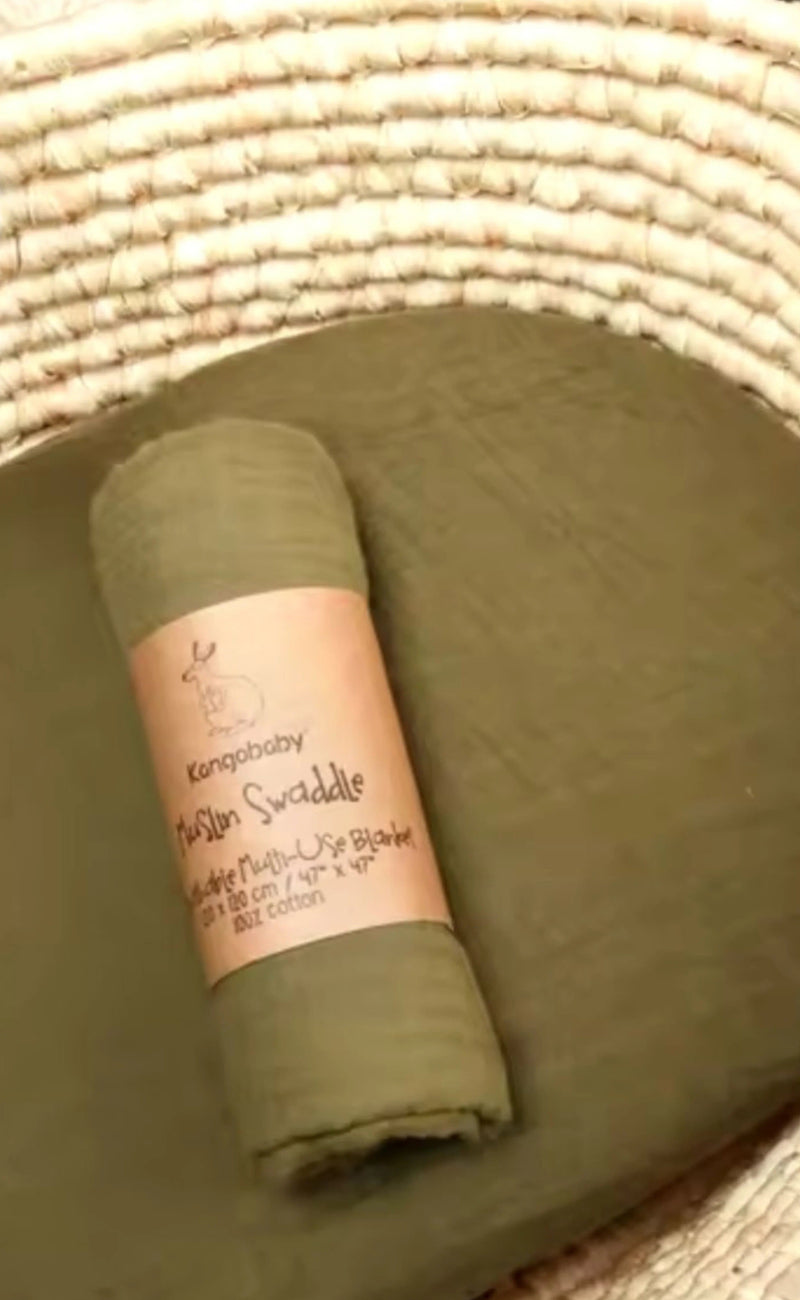 Kangobaby
Muslin Swaddle
Multi-Use Blanket
x 120 cm / 47" x 47"
100% cotton